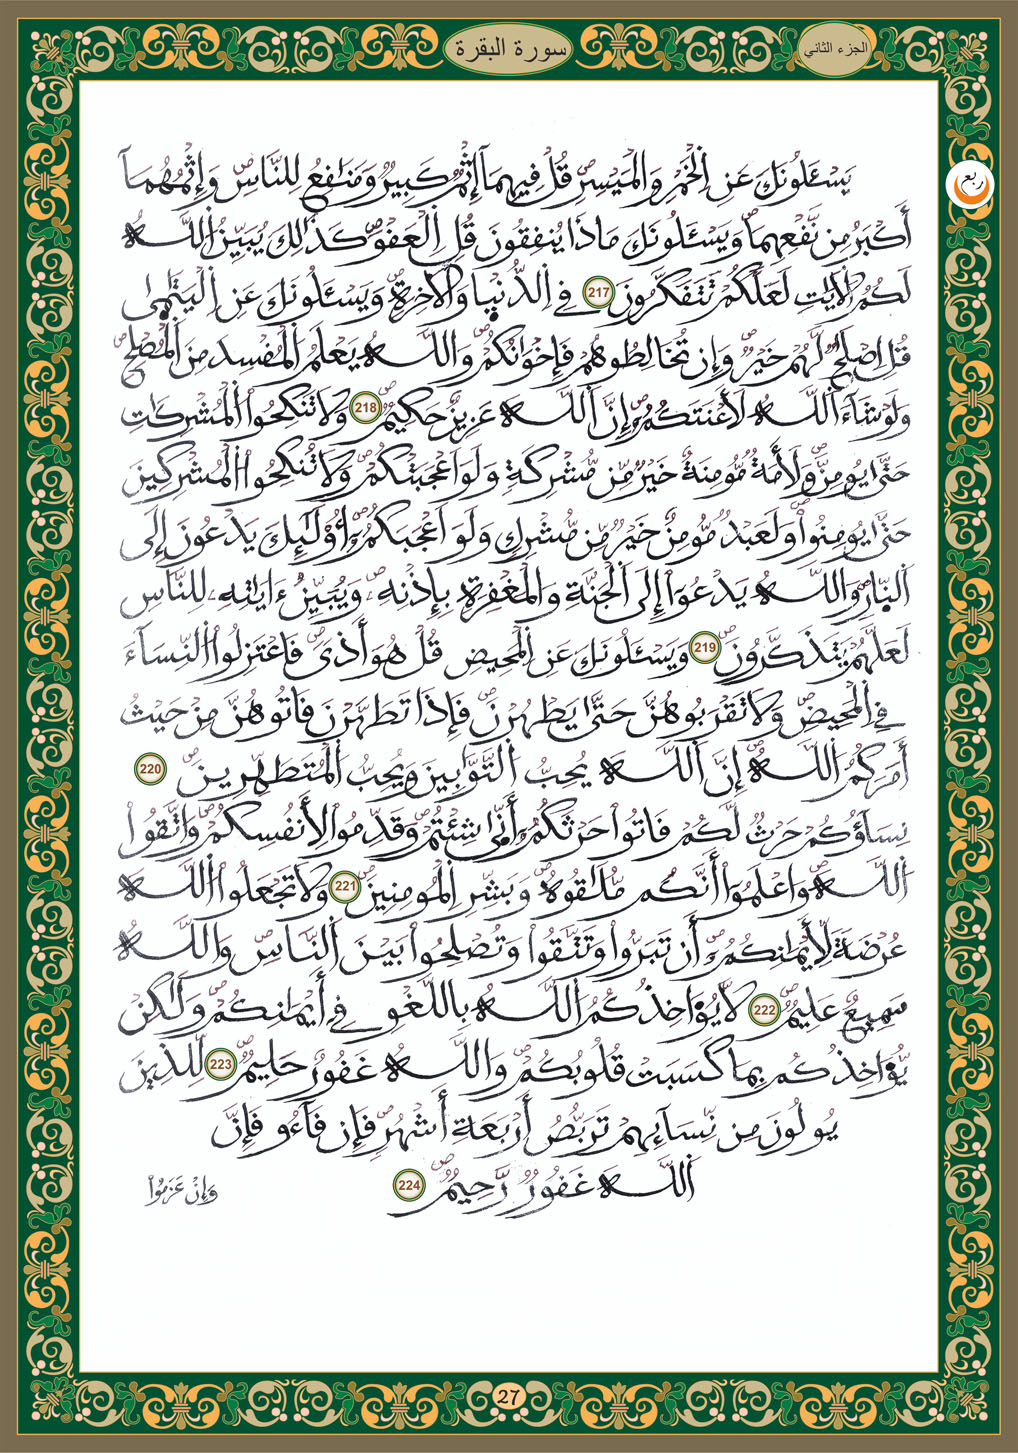 الجزء الثاني
سورة البقرة
ربع
يَسْـَٔلُونَكَ عَنِ اِ۬لْخَمْرِ وَالْمَيْسِرِۖ قُلْ فِيهِمَآ إِثْمٞ كَبِيرٞ وَمَنَٰفِعُ لِلنَّاسِۖ وَإِثْمُهُمَآ
أَكْبَرُ مِن نَّفْعِهِمَاۖ وَيَسْـَٔلُونَكَ مَاذَا يُنفِقُونَۖ قُلِ اِ۬لْعَفْوَۖ كَذَٰلِكَ يُبَيِّنُ اُ۬للَّهُ
لَكُمُ اُ۬لْأٓيَٰتِ لَعَلَّكُمْ تَتَفَكَّرُونَ 217 فِے اِ۬لدُّنْي۪ا وَالْأٓخِرَةِۖ وَيَسْـَٔلُونَكَ عَنِ اِ۬لْيَتَٰم۪ىٰ
قُلِ اِصْلَٰحٞ لَّهُمْ خَيْرٞۖ وَإِن تُخَالِطُوهُمْ فَإِخْوَٰنُكُمْۖ وَاللَّهُ يَعْلَمُ اُ۬لْمُفْسِدَ مِنَ اَ۬لْمُصْلِحِۖ
وَلَوْ شَآءَ اَ۬للَّهُ لَأَعْنَتَكُمُۥٓۖ إِنَّ اَ۬للَّهَ عَزِيزٌ حَكِيمٞۖ 218 وَلَا تَنكِحُواْ اُ۬لْمُشْرِكَٰتِ
حَتَّىٰ يُومِنَّۖ وَلَأَمَةٞ مُّومِنَةٌ خَيْرٞ مِّن مُّشْرِكَةٖ وَلَوَ اَعْجَبَتْكُمْۖ وَلَا تُنكِحُواْ اُ۬لْمُشْرِكِينَ
حَتَّىٰ يُومِنُواْۖ وَلَعَبْدٞ مُّومِنٌ خَيْرٞ مِّن مُّشْرِكٖ وَلَوَ اَعْجَبَكُمُۥٓۖ أُوْلَٰٓئِكَ يَدْعُونَ إِلَى
اَ۬لنّ۪ارِۖ وَاللَّهُ يَدْعُوٓاْ إِلَى اَ۬لْجَنَّةِ وَالْمَغْفِرَةِ بِإِذْنِهِۦۖ وَيُبَيِّنُ ءَايَٰتِهِۦ لِلنَّاسِ
لَعَلَّهُمْ يَتَذَكَّرُونَۖ 219 وَيَسْـَٔلُونَكَ عَنِ اِ۬لْمَحِيضِ قُلْ هُوَ أَذىٗۖ فَاعْتَزِلُواْ اُ۬لنِّسَآءَ
فِے اِ۬لْمَحِيضِۖ وَلَا تَقْرَبُوهُنَّ حَتَّىٰ يَطْهُرْنَۖ فَإِذَا تَطَهَّرْنَ فَاتُوهُنَّ مِنْ حَيْثُ
أَمَرَكُمُ اُ۬للَّهُۖ إِنَّ اَ۬للَّهَ يُحِبُّ اُ۬لتَّوَّٰبِينَ وَيُحِبُّ اُ۬لْمُتَطَهِّرِينَۖ 220
نِسَآؤُكُمْ حَرْثٞ لَّكُمْ فَاتُواْ حَرْثَكُمُۥٓ أَنّ۪ىٰ شِئْتُمْۖ وَقَدِّمُواْ لِأَنفُسِكُمْۖ وَاتَّقُواْ
اُ۬للَّهَۖ وَاعْلَمُوٓاْ أَنَّكُم مُّلَٰقُوهُۖ وَبَشِّرِ اِ۬لْمُومِنِينَۖ 221 وَلَا تَجْعَلُواْ اُ۬للَّهَ
عُرْضَةٗ لِّأَيْمَٰنِكُمُۥٓ أَن تَبَرُّواْ وَتَتَّقُواْ وَتُصْلِحُواْ بَيْنَ اَ۬لنَّاسِۖ وَاللَّهُ
سَمِيعٌ عَلِيمٞۖ 222 لَّا يُؤَاخِذُكُمُ اُ۬للَّهُ بِاللَّغْوِ فِےٓ أَيْمَٰنِكُمْۖ وَلَٰكِنْ
يُّؤَاخِذُكُم بِمَا كَسَبَتْ قُلُوبُكُمْۖ وَاللَّهُ غَفُورٌ حَلِيمٞۖ 223 لِّلذِينَ
يُولُونَ مِن نِّسَآئِهِمْ تَرَبُّصُ أَرْبَعَةِ أَشْهُرٖۖ فَإِن فَآءُو فَإِنَّ
اَ۬للَّهَ غَفُورٞ رَّحِيمٞۖ 224
وَإِنْ عَزَمُواْ
27